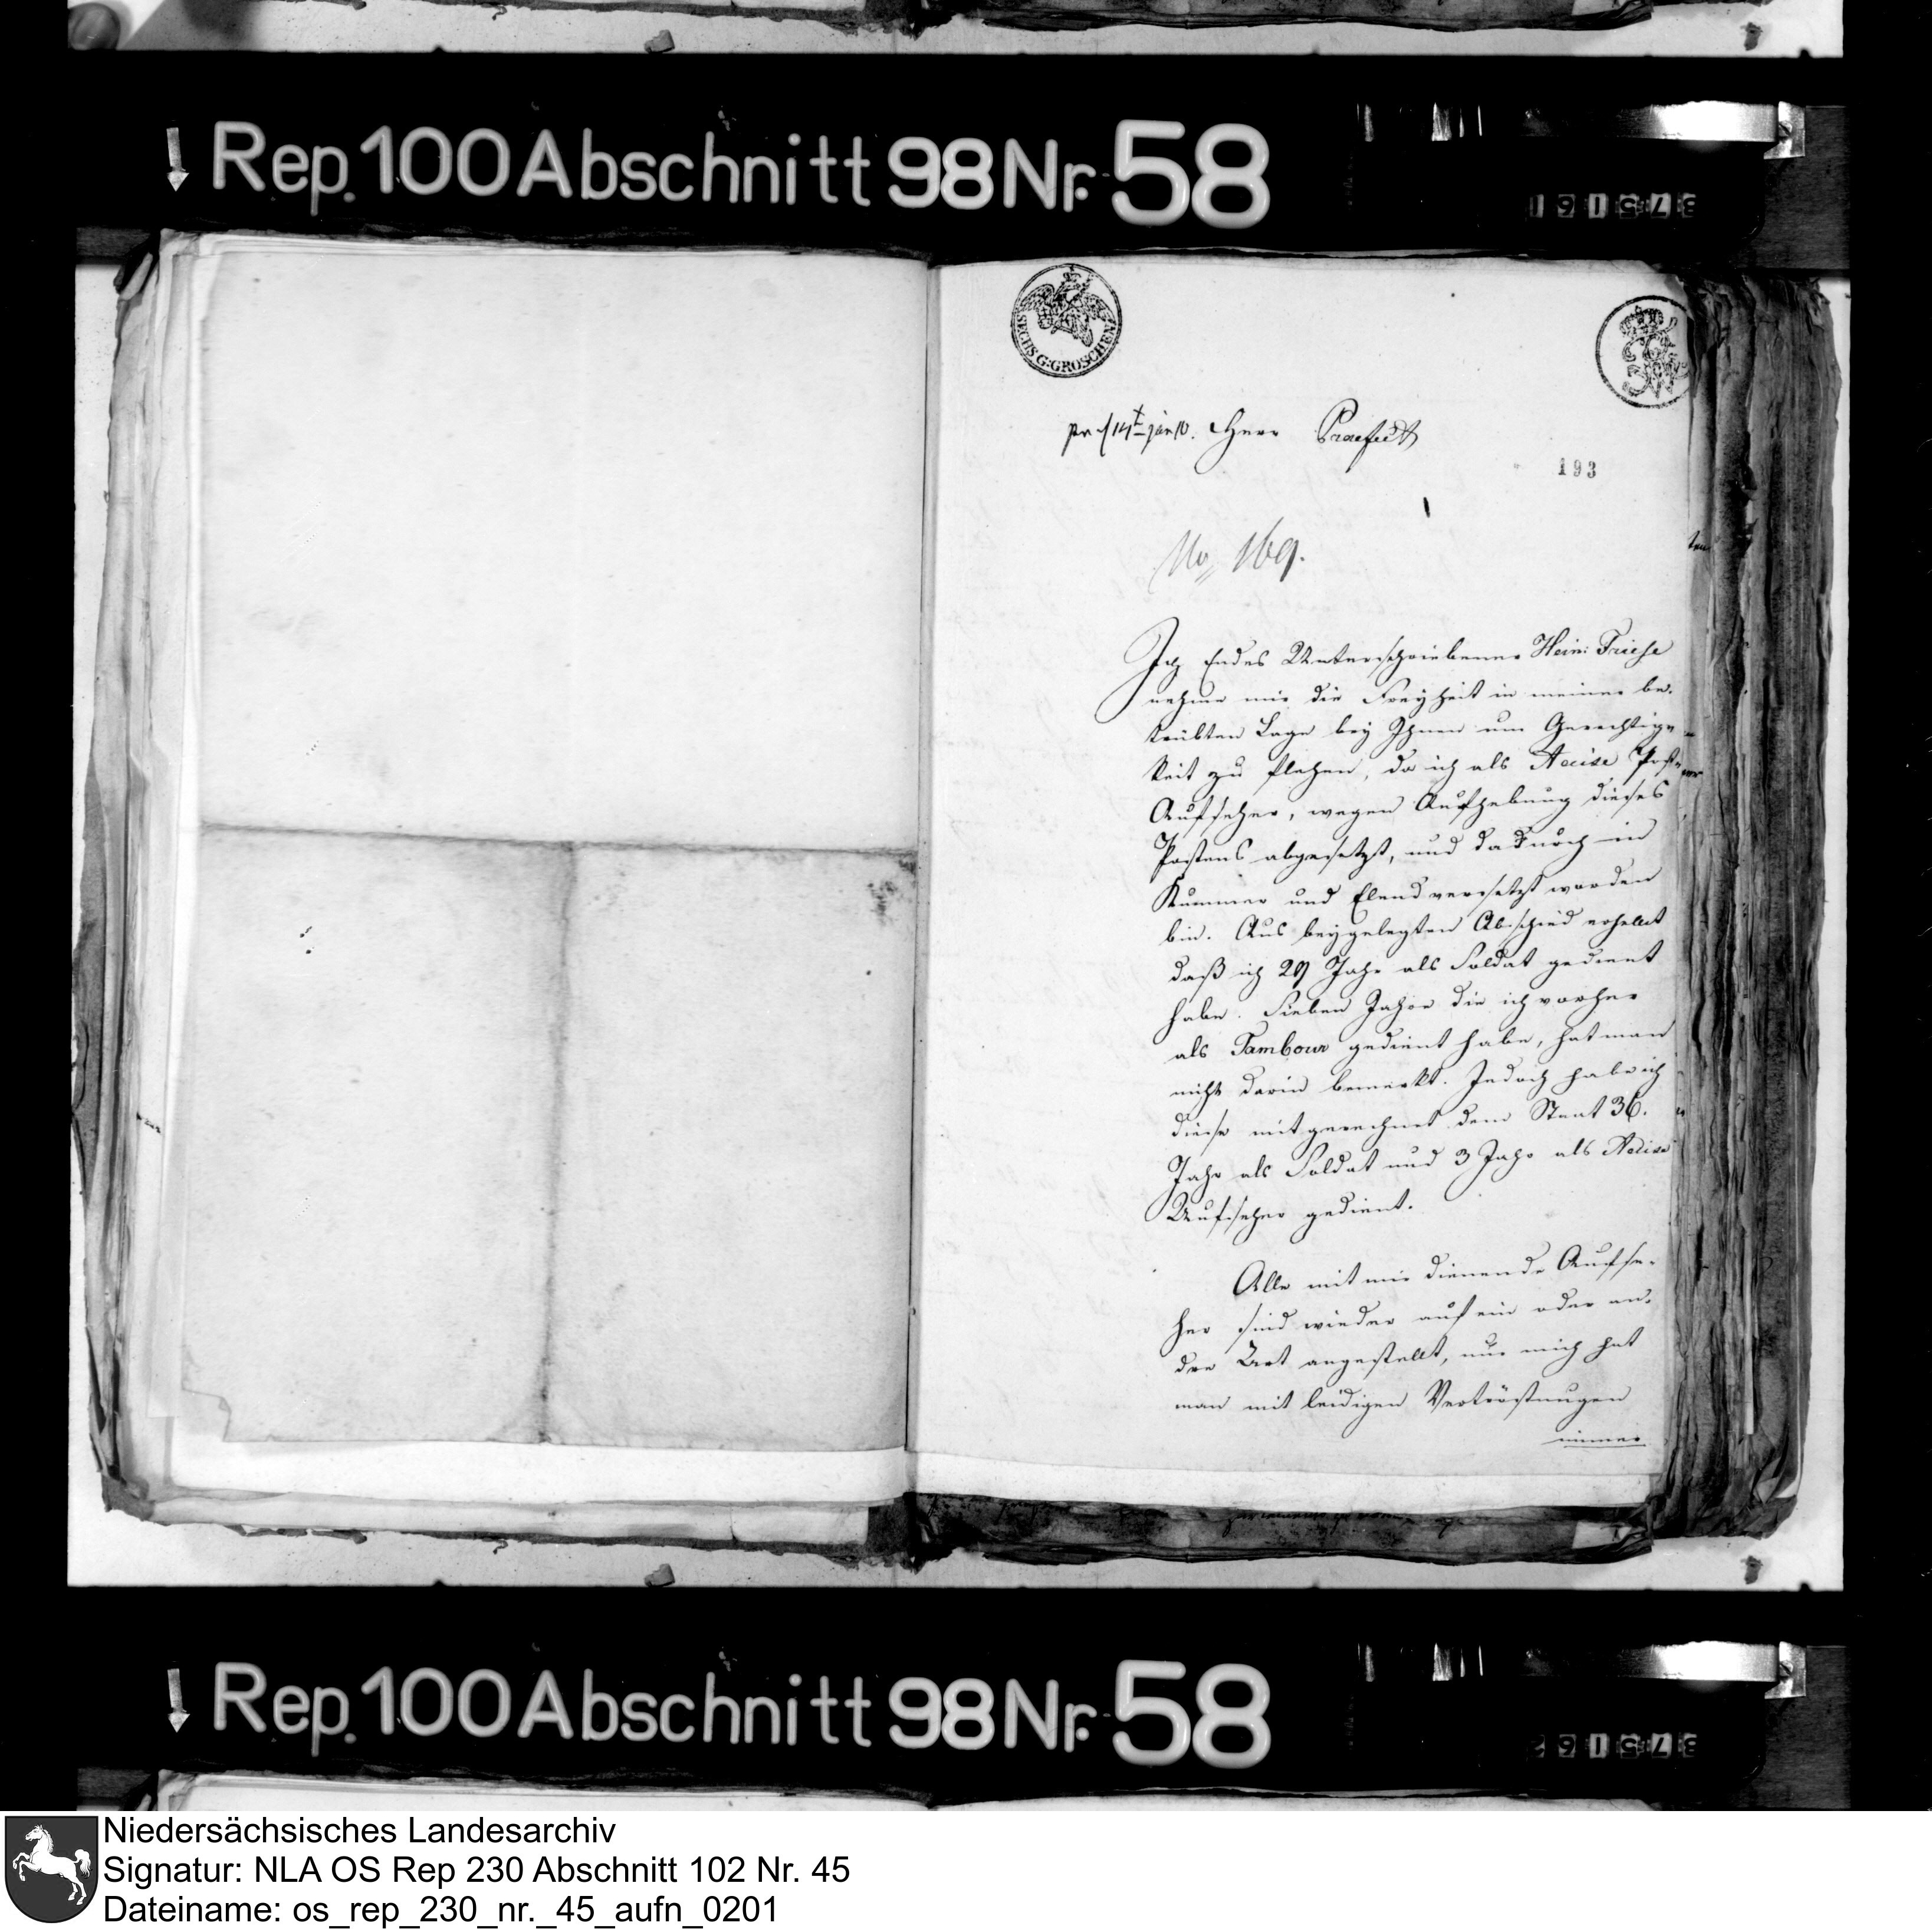 Rep. 100 Abschnitt 98 Nr. 58
SECHS G:GROSCHEN
Herr Praefect
193
No 169.
Ich Endes Unterschriebener Hein: Friese
nehme mir die Freyheit in meiner be-
trübten Lage bey Ihnen um Gerechtig-
keit zu flehen, da ich als Accise Post-
Aufseher, wegen Aufhebung dieses
Postens abgesetzt, und dadurch in
Kummer und Elend versetzt worden
bin. Aus beygelegten Abschied erhellet
daß ich 29 Jahr als Soldat gedient
habe. Sieben Jahre die ich vorher
als Tambour gedient habe, hat man
nicht darin bemerkt. Jedoch habe ich
diese mitgerechnet dem Staat 36.
Jahr als Soldat und 3 Jahr als Accise
Aufseher gedient.
Alle mit mir dienende Aufse-
her sind wieder auf ein oder an-
dre Art angestellt, nur mich hat
man mit leidigen Vertröstungen
immer
Rep. 100 Abschnitt 98 Nr. 58
Niedersächsisches Landesarchiv
Signatur: NLA OS Rep 230 Abschnitt 102 Nr. 45
Dateiname: os_rep_230_nr._45_aufn_0201